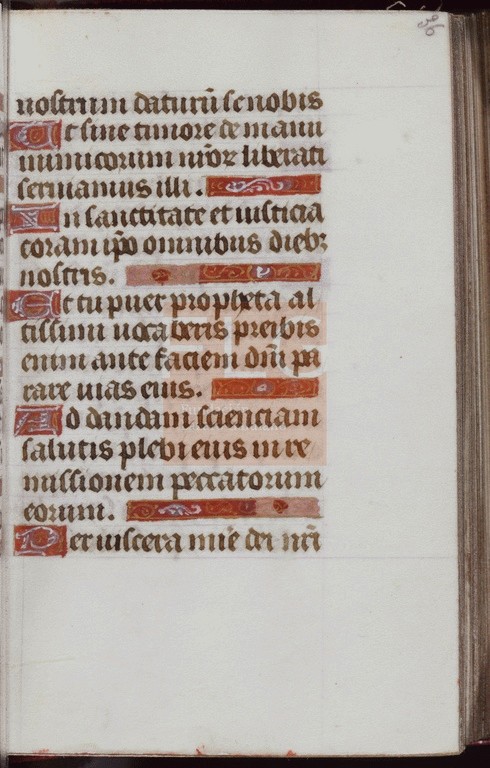 36
nostrum daturū se nobis
Ut sine timore de manu
inimicorum nr̄oꝝ liberati
seruiamus illi.
In sanctitate et iusticia
coram ip̄o omnibus diebꝫ
nostris.
Et tu puer propheta al
tissimi uocaberis preibis
enim ante faciem dn̄i pa
rare uias eius.
Ad dandam scienciam
salutis plebi eius in re
missionem peccatorum
eorum.
Per uiscera mīe dei nr̄i